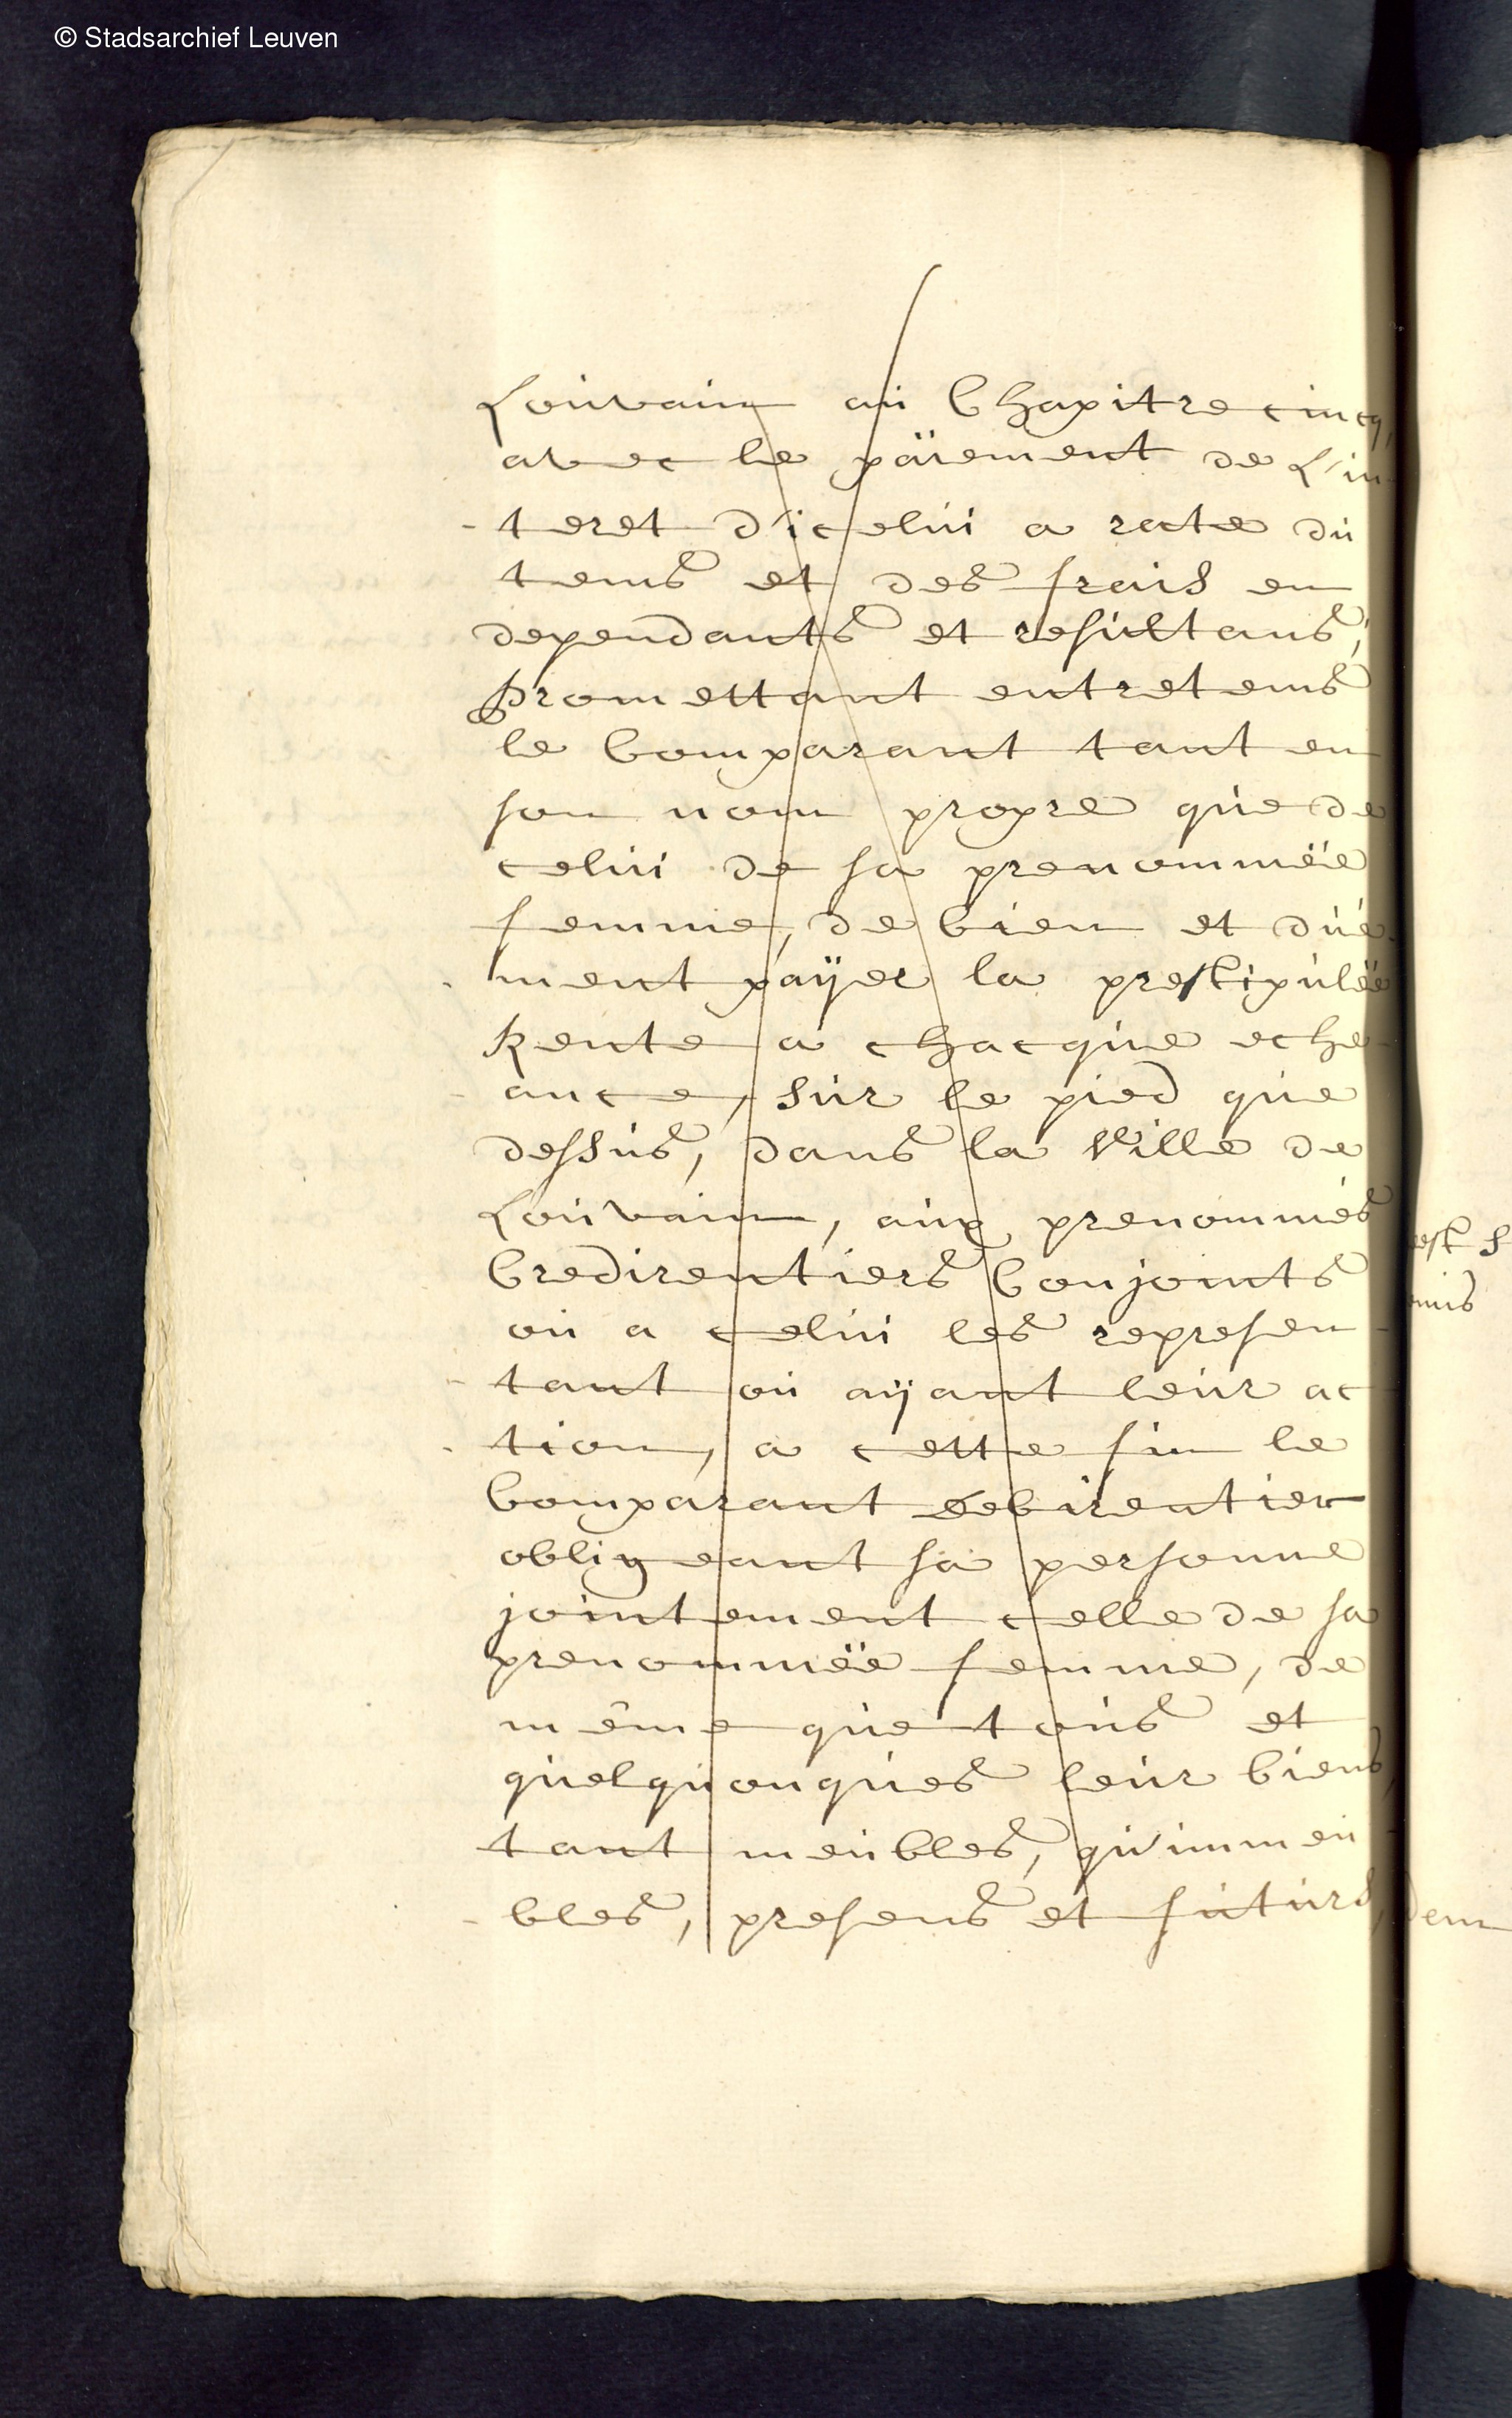 © Stadsarchief Leuven
Louvain au Chapitre cincq,
avec le päiement de L'in
-teret d'icelui a rate du
tems et des frais en
dependants et resultans;
Promettant entretems
le Comparant tant en
son nom propre que de
celui de sa prenommëe
femme, de bien et düe
-ment paÿer la prestipulëe
Rente a chacque eche
-ance, sur le pied que
dessus, dans la Ville de
Louvain, aux prenommés
Credirentiers Conjoints
ou a celui les represen-
-tant ou aÿant leur ac
-tion, a cette fin le
Comparant debirentier
obligeant sa personne
jointement celle de sa
prenommëe femme, de
même que tous et
quelquonques leur biens,
tant meubles, qu'immeu-
-bles, presens et futurs,